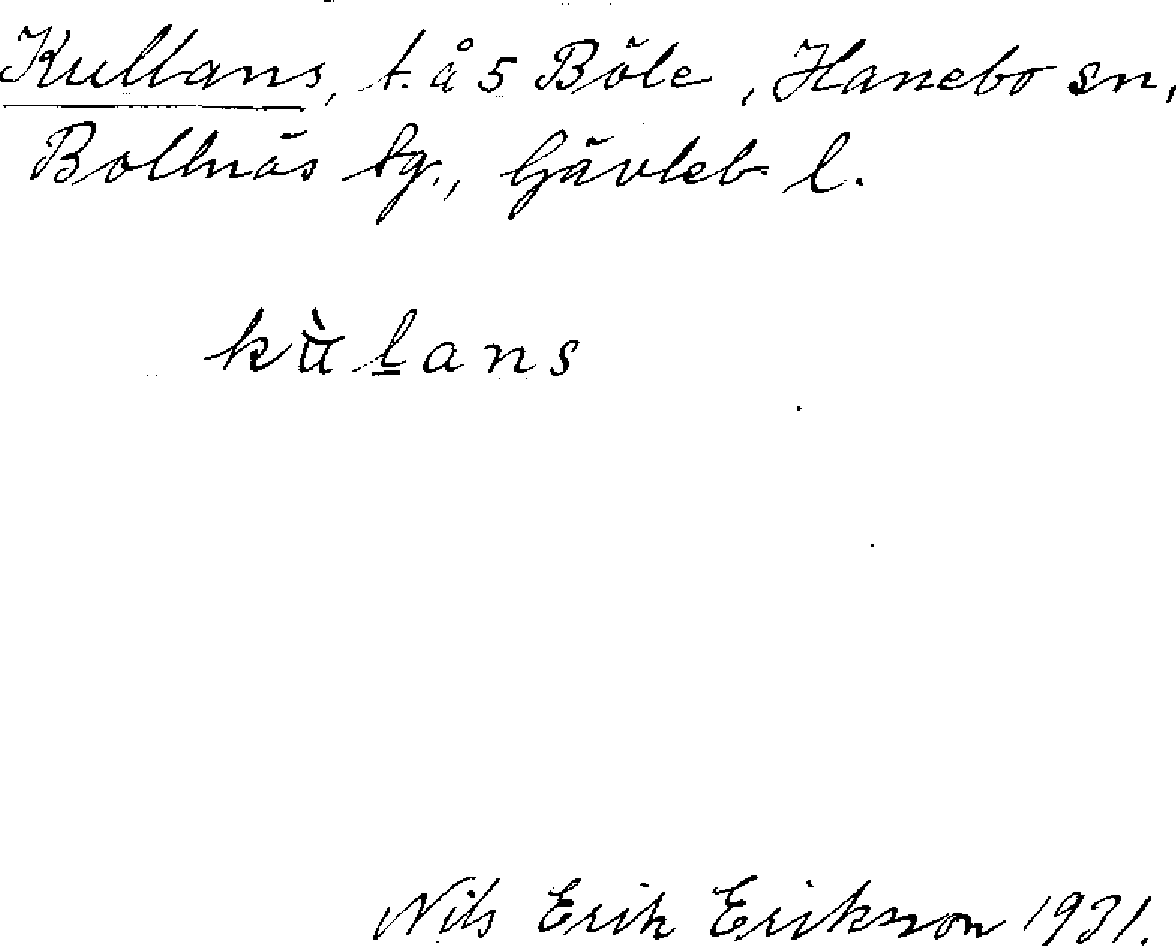 Kullans, t. å 5 Böle, Hanebo sn,
Bollnäs tg., Gävleb l.
kù̈l̲ans
Nils Erik Erikson 1931.